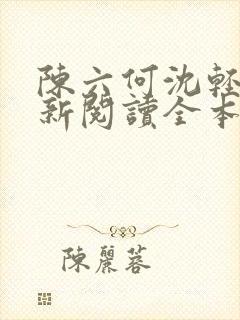 陳六何沈輕
新閱讀全本
陳麗蓉